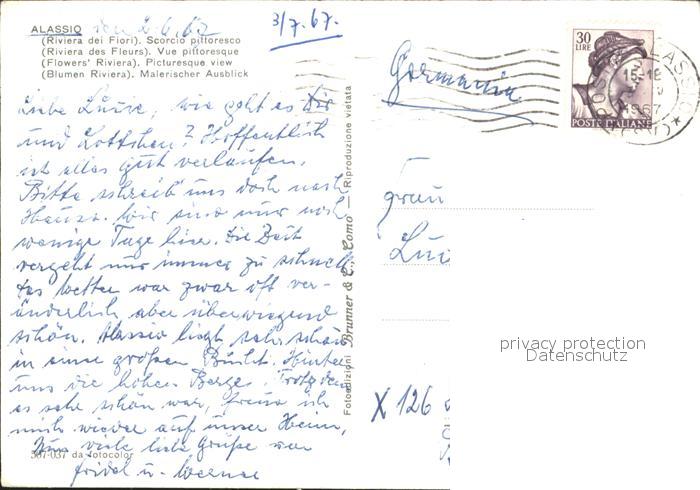 ALASSIO den 2.6.67
(Riviera dei Fiori). Scorcio pittoresco
(Riviera des Fleurs). Vue pittoresque
(Flowers' Riviera). Picturesque view
(Blumen Riviera). Malerischer Ausblick
3/7.67.
Liebe Luise, wie geht es Dir
und Lottchen? Hoffentlich
ist alles gut verlaufen.
Bitte schreib uns doch nach
Hause. Wir sind nur noch
wenige Tage hier. Die Zeit
vergeht uns immer zu schnell
Das Wetter war zwar oft ver-
änderlich aber überwiegend
schön. Alassio liegt sehr schön
in einer großen Bucht. Hinter
uns die hohen Berge. Trotzdem
es sehr schön war, freue ich
mich wieder auf unser Heim,
Nun viele liebe Grüße von
Fridel u. Werner
507-037 da fotocolor
Fotoedizioni Brunner & C. Como — (Riproduzione vietata
Germania
30
LIRE
POSTE ITALIANE
ALASSIO
15-18
1967
Frau
Lui
X 126
privacy protection
Datenschutz